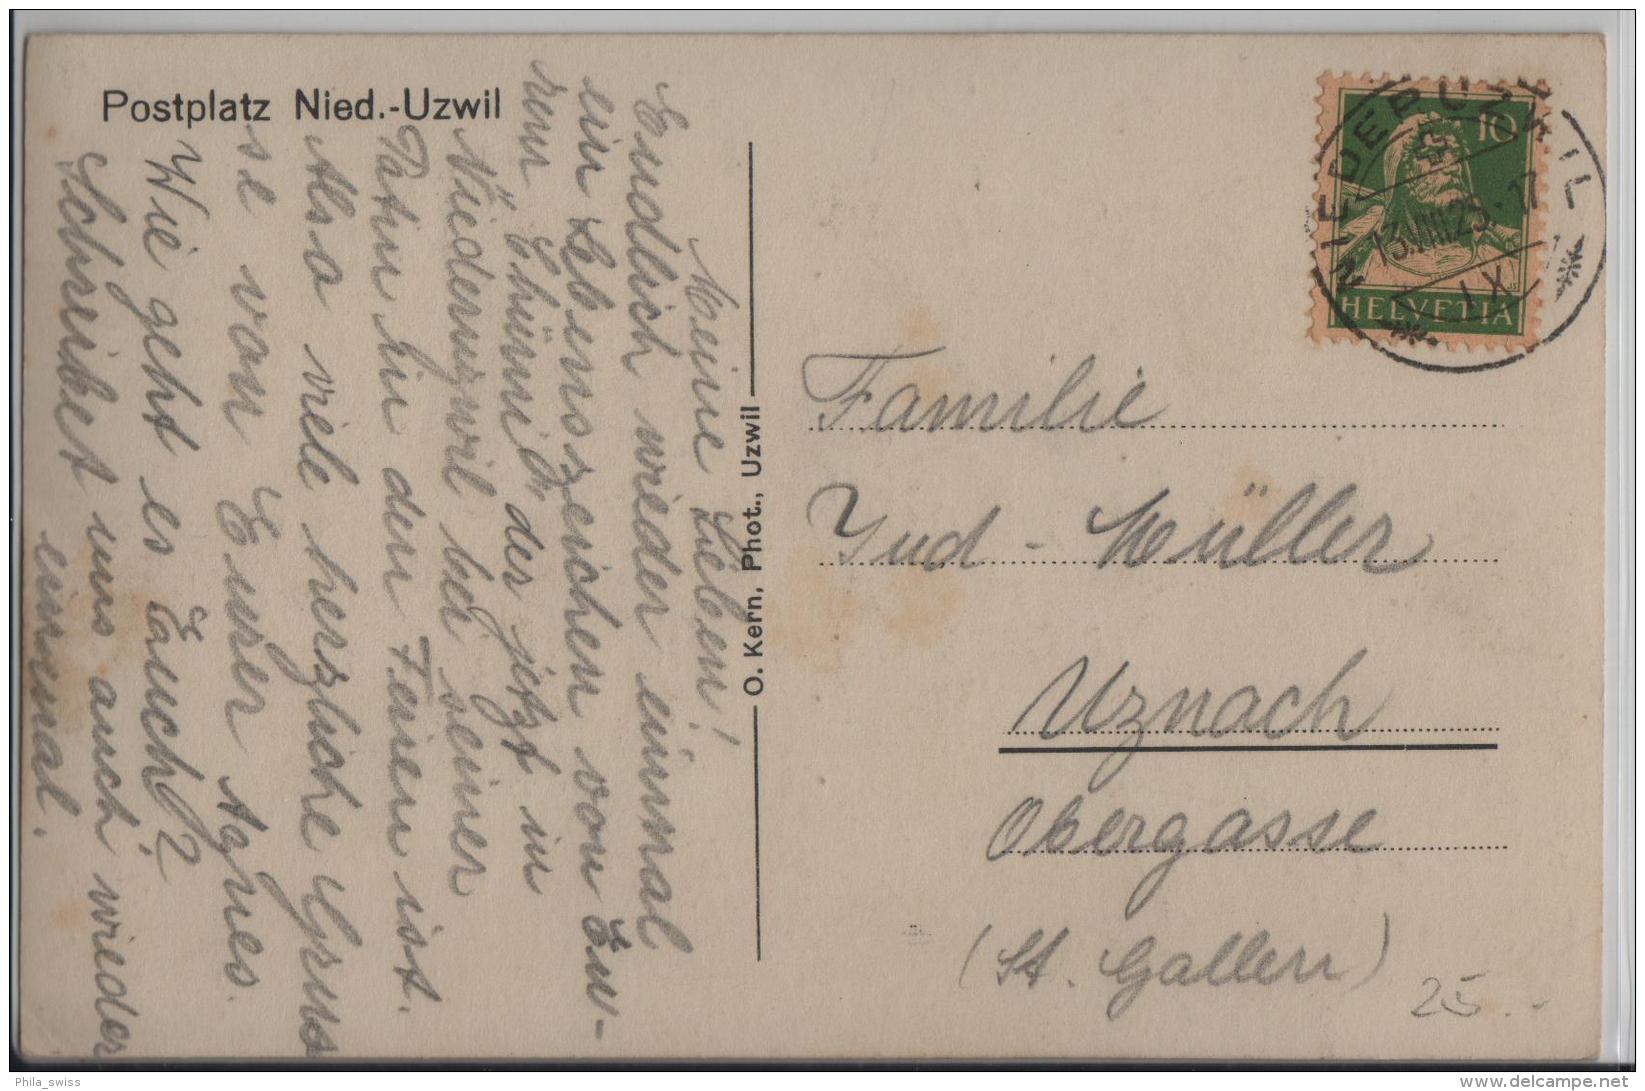 Postplatz Nied.-Uzwil
Meine Lieben!
Endlich wieder einmal
ein Lebenszeichen von Eu-
rem "der jetzt in
Niederuzwil bei seiner
Patin in den Ferien ist.
Also viele herzliche Grüs
se von Eurer Agnes.
Wie geht es Eauch?
Schreibet uns auch wieder
einmal.
O. Kern, Phot., Uzwil
NIEDERUZWIL
13.VIII.25.-17
IX
10
HELVETIA
Familie
Jud - Müller
Uznach
Obergasse
(St. Gallen)
25.-
Phila_swiss
www.delcampe.net